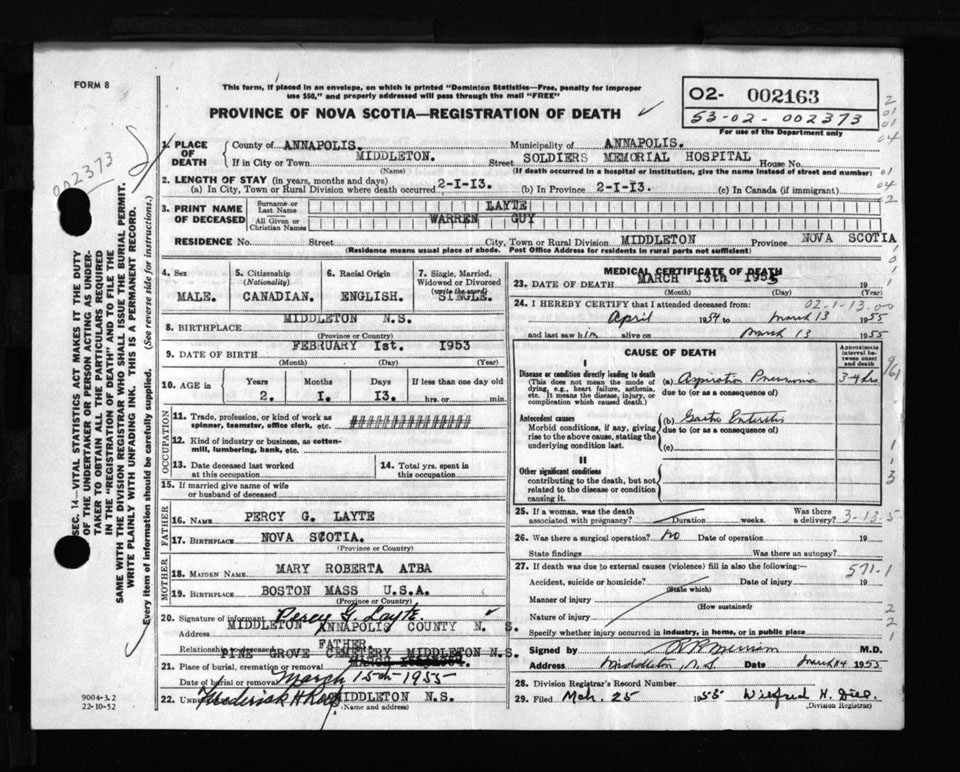 FORM 8
This form, if placed in an envelope, on which is printed "Dominion Statistics—Free, penalty for improper
use $50," and properly addressed will pass through the mail "FREE"
PROVINCE OF NOVA SCOTIA—REGISTRATION OF DEATH
02- 002163
53-02-002373
For use of the Department only
002373
SEC. 14—VITAL STATISTICS ACT MAKES IT THE DUTY
OF THE UNDERTAKER OR PERSON ACTING AS UNDER-
TAKER TO OBTAIN ALL THE PARTICULARS REQUIRED
IN THE "REGISTRATION OF DEATH" AND TO FILE THE
SAME WITH THE DIVISION REGISTRAR WHO SHALL ISSUE THE BURIAL PERMIT.
WRITE PLAINLY WITH UNFADING INK. THIS IS A PERMANENT RECORD.
Every item of information should be carefully supplied. (See reverse side for instructions.)
1. PLACE OF DEATH County of ANNAPOLIS. Municipality of ANNAPOLIS.
If in City or Town MIDDLETON. Street SOLDIERS MEMORIAL HOSPITAL House No.
(Name) (If death occurred in a hospital or institution, give the name instead of street and number)
2. LENGTH OF STAY (in years, months and days)
(a) In City, Town or Rural Division where death occurred 2-I-I3. (b) In Province 2-I-I3. (c) In Canada (if immigrant)
3. PRINT NAME OF DECEASED Surname or Last Name LAYTE
All Given or Christian Names WARREN GUY
RESIDENCE No. Street City, Town or Rural Division MIDDLETON Province NOVA SCOTIA
(Residence means usual place of abode. Post Office Address for residents in rural parts not sufficient)
4. Sex 5. Citizenship (Nationality) 6. Racial Origin 7. Single, Married, Widowed or Divorced (write the word)
MALE. CANADIAN. ENGLISH. SINGLE.
8. BIRTHPLACE MIDDLETON N.S.
(Province or Country)
9. DATE OF BIRTH FEBRUARY Ist. 1953
(Month) (Day) (Year)
10. AGE in Years Months Days If less than one day old
2. I. I3. hrs. or min.
OCCUPATION
11. Trade, profession, or kind of work as
spinner, teamster, office clerk, etc. ################
12. Kind of industry or business, as cotton-
mill, lumbering, bank, etc.
13. Date deceased last worked at this occupation 14. Total yrs. spent in this occupation
15. If married give name of wife
or husband of deceased
FATHER
16. NAME PERCY G. LAYTE
17. BIRTHPLACE NOVA SCOTIA.
(Province or Country)
MOTHER
18. MAIDEN NAME MARY ROBERTA ATBA
19. BIRTHPLACE BOSTON MASS U.S.A.
(Province or Country)
20. Signature of informant Percy G. Layte.
Address MIDDLETON ANNAPOLIS COUNTY N. S.
Relationship to deceased FATHER.
PINE GROVE CEMETERY MIDDLETON N.S.
21. Place of burial, cremation or removal
Date of burial or removal March 15th 1955
22. UNDERTAKER Frederick H Roop MIDDLETON N.S.
(Name and address)
9004-3.2
22-10-52
MEDICAL CERTIFICATE OF DEATH
23. DATE OF DEATH MARCH I3th 1955 19
(Month) (Day) (Year)
24. I HEREBY CERTIFY that I attended deceased from: 02-1-13-00
April 1954 to March 13 1955
and last saw him alive on March 13 1955
CAUSE OF DEATH
Approximate interval between onset and death
I
Disease or condition directly leading to death
(This does not mean the mode of
dying, e.g., heart failure, asthenia,
etc. It means the disease, injury, or
complication which caused death.)
(a) Aspiration Pneumonia 3-4 hrs
due to (or as a consequence of)
Antecedent causes
Morbid conditions, if any, giving
rise to the above cause, stating the
underlying condition last.
(b) Gastro Enteritis
due to (or as a consequence of)
(c)
II
Other significant conditions
contributing to the death, but not
related to the disease or condition
causing it.
25. If a woman, was the death
associated with pregnancy? Duration weeks. Was there a delivery? 3-13-5
26. Was there a surgical operation? no Date of operation 19
State findings Was there an autopsy?
27. If death was due to external causes (violence) fill in also the following:— 571-1
Accident, suicide or homicide? Date of injury 19
(State which)
Manner of injury
(How sustained)
Nature of injury
Specify whether injury occurred in industry, in home, or in public place
Signed by M.D.
Address Middleton, N.S Date March 14 1955
28. Division Registrar's Record Number
29. Filed Mch. 25 1955
(Division Registrar)